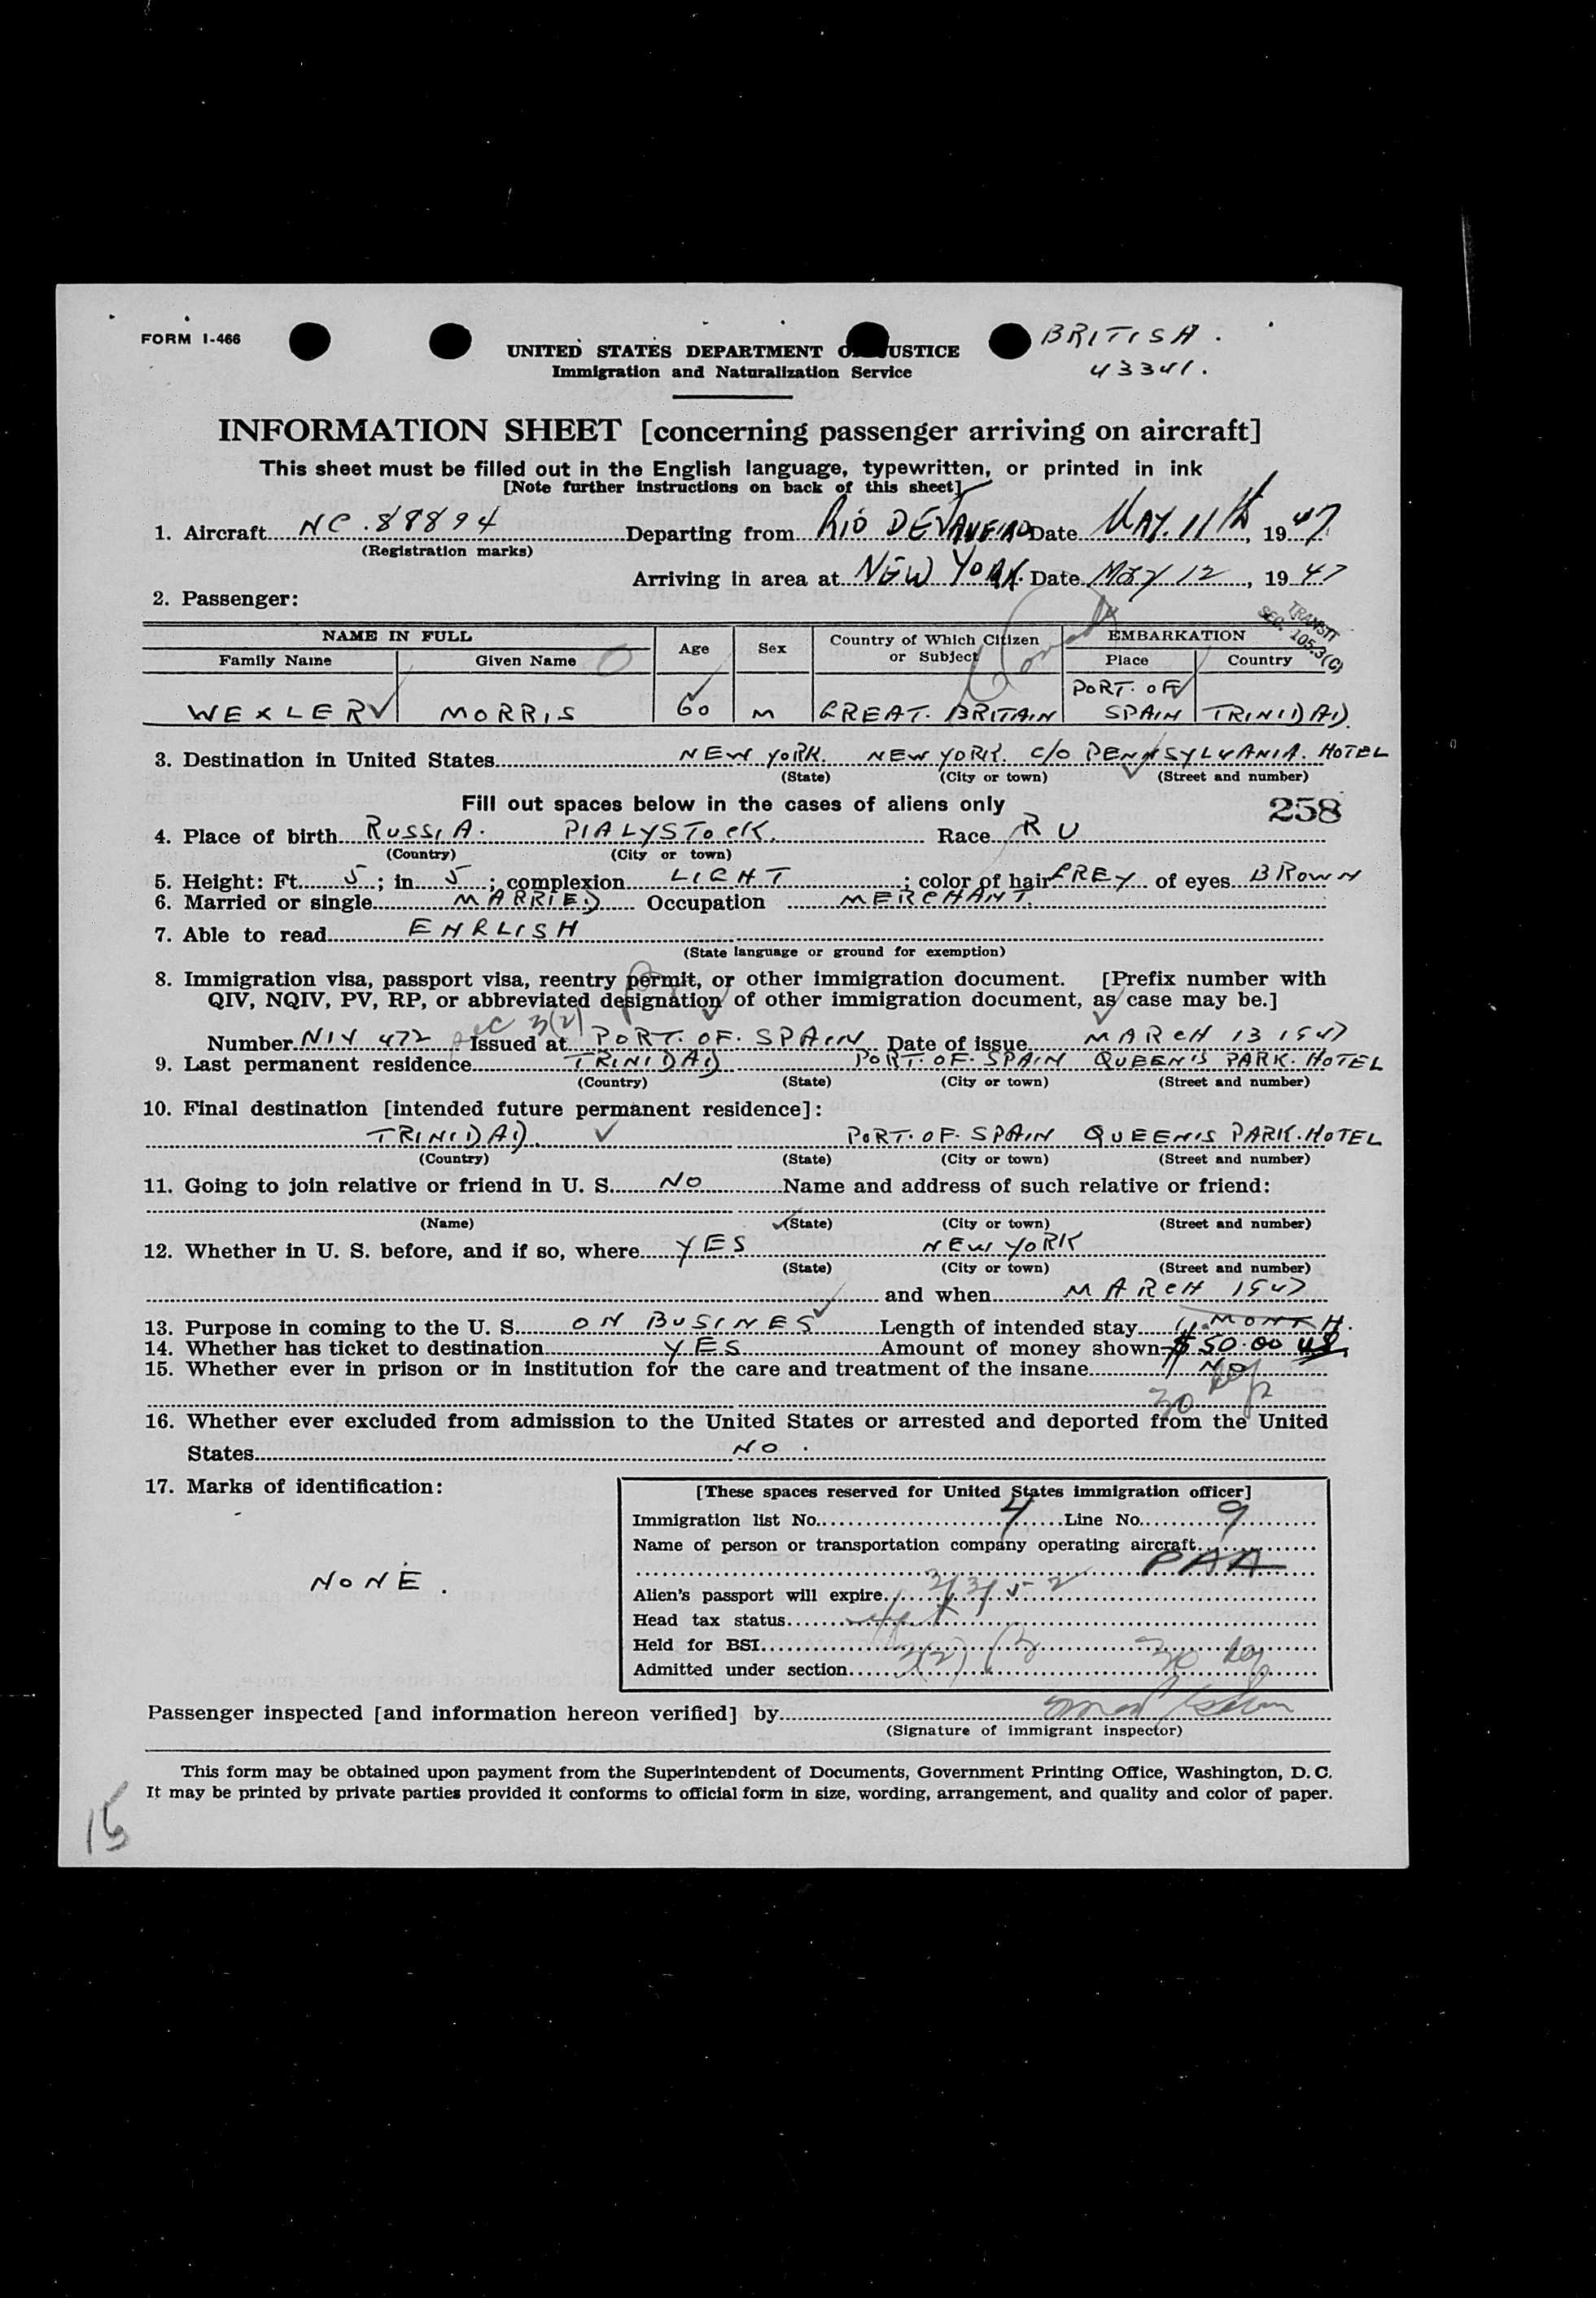 FORM I-466
BRITISH.
43341.
UNITED STATES DEPARTMENT OF JUSTICE
Immigration and Naturalization Service
INFORMATION SHEET [concerning passenger arriving on aircraft]
This sheet must be filled out in the English language, typewritten, or printed in ink
[Note further instructions on back of this sheet]
1. Aircraft NC.88894 Departing from RIO DE JANEIRO Date MAY. 11th, 1947
(Registration marks)
Arriving in area at NEW YORK. Date MAY 12, 1947
2. Passenger:
TRANSIT
SEC. 105.3(C)
NAME IN FULL Age Sex Country of Which Citizen or Subject EMBARKATION
Family Name Given Name Place Country
WEXLER MORRIS 60 M GREAT. BRITAIN PORT. OF SPAIN TRINIDAD
3. Destination in United States NEW YORK. NEW YORK. C/O PENNSYLVANIA. HOTEL
(State) (City or town) (Street and number)
Fill out spaces below in the cases of aliens only
258
4. Place of birth RUSSIA. PIALYSTOCK. Race R U
(Country) (City or town)
5. Height: Ft. 5; in. 5; complexion LIGHT; color of hair GREY of eyes BROWN
6. Married or single MARRIED Occupation MERCHANT.
7. Able to read ENRLISH
(State language or ground for exemption)
8. Immigration visa, passport visa, reentry permit, or other immigration document. [Prefix number with
QIV, NQIV, PV, RP, or abbreviated designation of other immigration document, as case may be.]
sec 3(2)
Number NIV 472 Issued at PORT. OF. SPAIN Date of issue MARCH 13 1947
9. Last permanent residence TRINIDAD PORT. OF. SPAIN QUEEN'S PARK. HOTEL
(Country) (State) (City or town) (Street and number)
10. Final destination [intended future permanent residence]:
TRINIDAD. PORT. OF. SPAIN QUEEN'S PARK. HOTEL
(Country) (State) (City or town) (Street and number)
11. Going to join relative or friend in U. S. NO Name and address of such relative or friend:
(Name) (State) (City or town) (Street and number)
12. Whether in U. S. before, and if so, where YES NEW YORK
(State) (City or town) (Street and number)
and when MARCH 1947
13. Purpose in coming to the U. S. ON BUSINES Length of intended stay MONTH.
14. Whether has ticket to destination YES Amount of money shown $50.00 US.
15. Whether ever in prison or in institution for the care and treatment of the insane NO
30
16. Whether ever excluded from admission to the United States or arrested and deported from the United
States NO.
17. Marks of identification:
NONE.
[These spaces reserved for United States immigration officer]
Immigration list No. 4 Line No. 9
Name of person or transportation company operating aircraft
PAA
Alien's passport will expire
Head tax status
Held for BSI
Admitted under section
Passenger inspected [and information hereon verified] by
(Signature of immigrant inspector)
This form may be obtained upon payment from the Superintendent of Documents, Government Printing Office, Washington, D. C.
It may be printed by private parties provided it conforms to official form in size, wording, arrangement, and quality and color of paper.
15